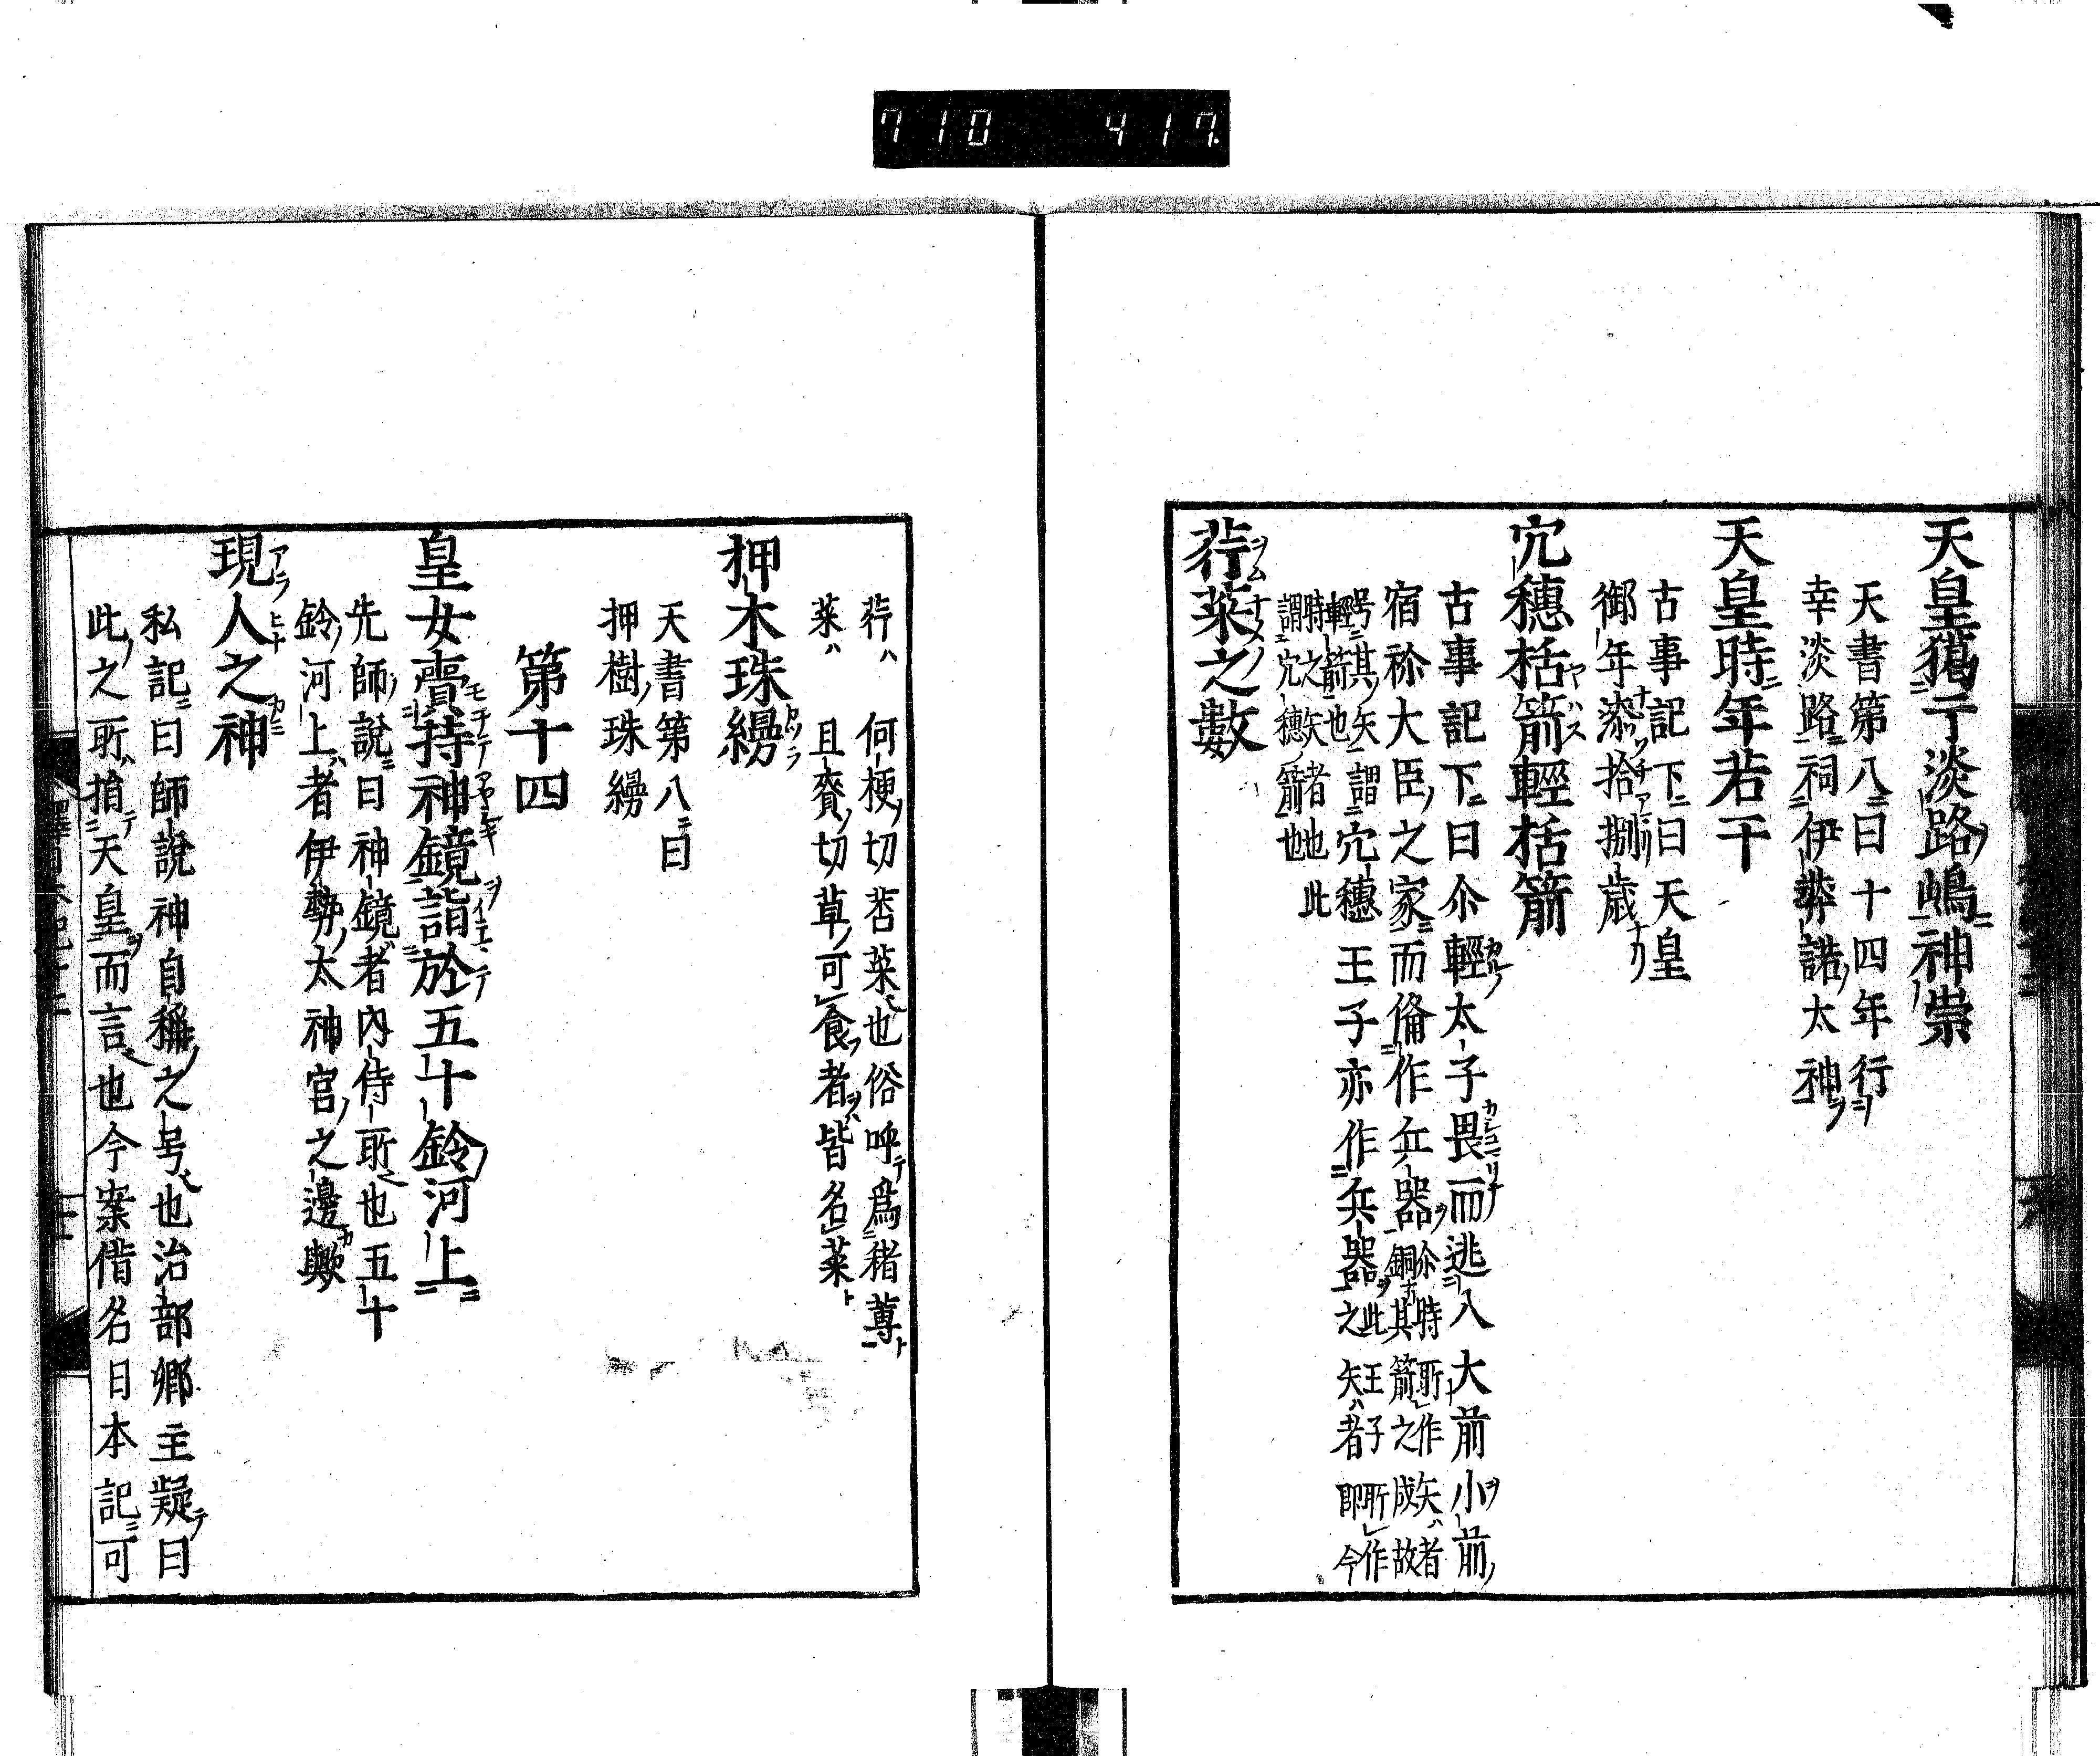 710 417
天皇獦于淡路嶋神祟
天書第八曰十四年行
幸淡路祠伊弉諾太神
天皇時年若干
古事記下曰天皇
御年漆拾捌歳
穴穗括箭輕括箭
古事記下曰尒輕太子畏而逃入大前小前
宿祢大臣之家而俻作兵器尒時所作矢者
銅其箭之成故
号其矢謂穴穗王子亦作兵器此王子所作
之矢者即今
輕箭也
時之矢者也此
謂穴穗箭也
荇菜之數
荇何梗切荅菜也俗呼爲猪蓴
菜且賚切草可食者皆名菜
押木珠縵
天書第八曰
押樹珠縵
第十四
皇女賷持神鏡詣於五十鈴河上
先師說曰神鏡者內侍所也五十
鈴河上者伊勢太神宮之邊歟
現人之神
私記曰師說神自稱之号也治部卿主疑曰
此之所指天皇而言也今案偕名日本記可